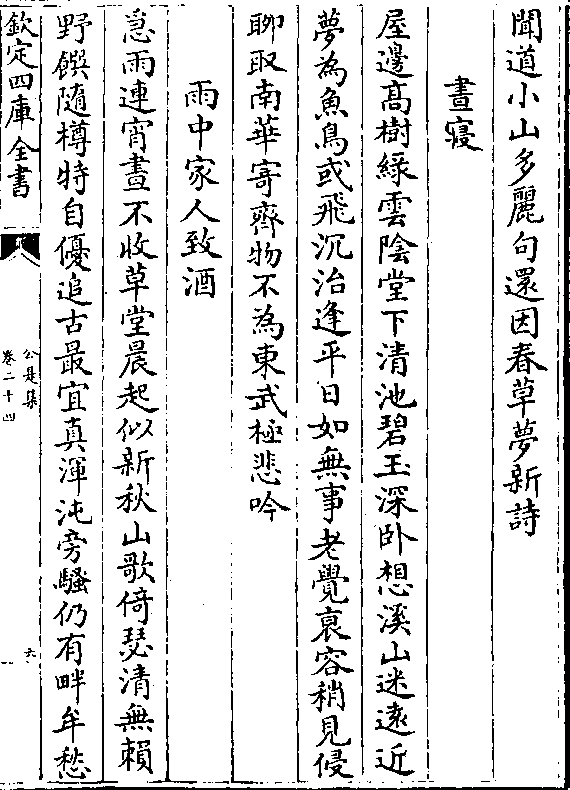 聞道小山多麗句還因春草夢新詩
晝寢
屋邊髙樹緑雲陰堂下清池碧玉深卧想溪山迷遠近
夢為魚鳥或飛沉治逢平日如無事老覺衰容稍見侵
聊取南華寄齊物不為東武極悲吟
雨中家人致酒
急雨連宵晝不收草堂晨起似新秋山歌倚瑟清無賴
野饌隨樽特自優追古最宜真渾沌旁騷仍有畔牢愁
欽定四庫全書
公是集
卷二十四
六